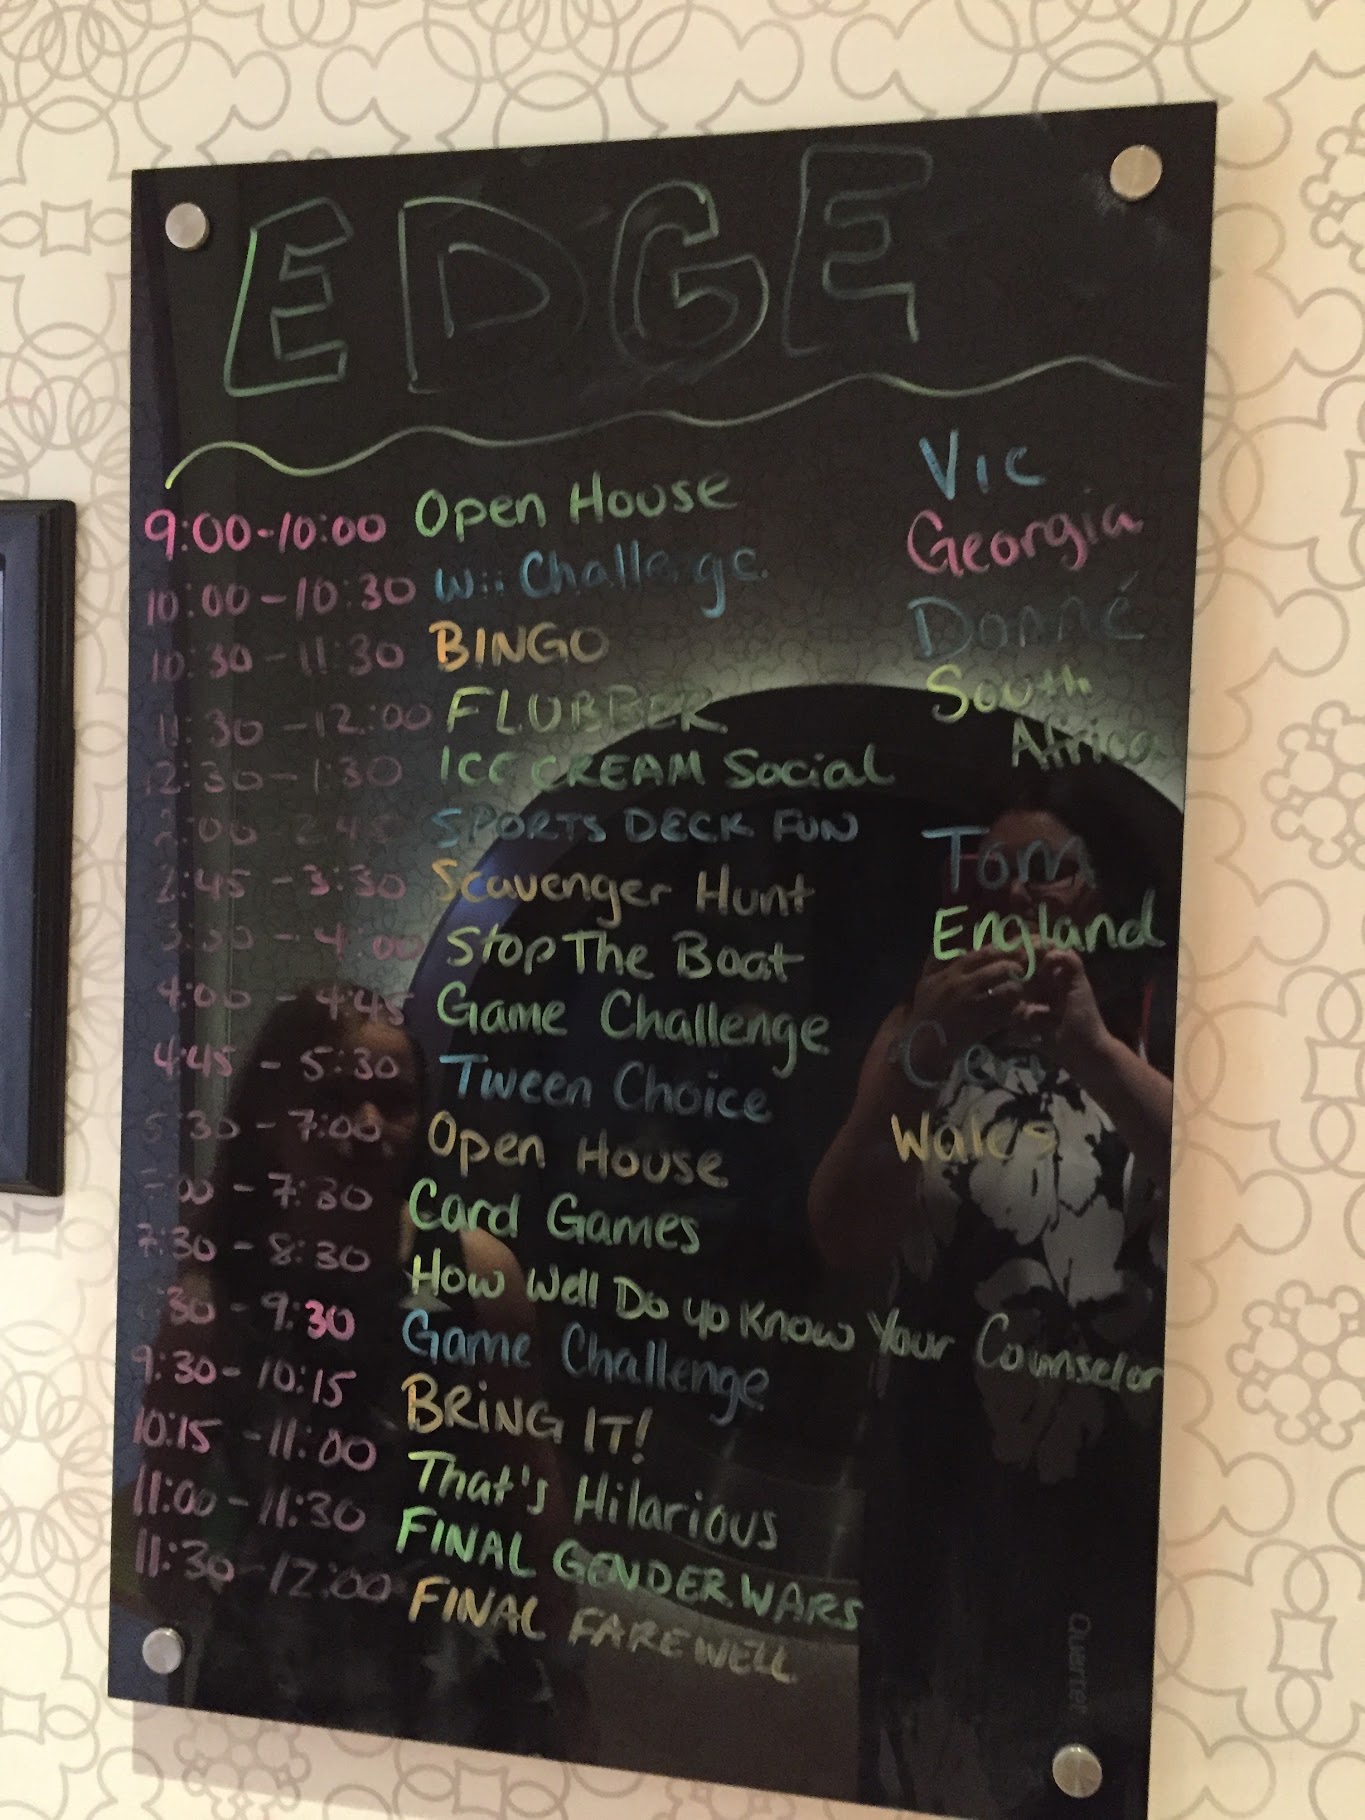 EDGE
9:00-10:00 Open House
10:00-10:30 Wii Challenge
10:30-11:30 BINGO
11:30-12:00 FLUBBER
12:30-1:30 ICE CREAM Social
2:00-2:45 SPORTS DECK FUN
2:45-3:30 Scavenger Hunt
3:30-4:00 Stop The Boat
4:00-4:45 Game Challenge
4:45-5:30 Tween Choice
5:30-7:00 Open House
7:00-7:30 Card Games
7:30-8:30 How Well Do yo Know Your Counselor
:30-9:30 Game Challenge
9:30-10:15 BRiNG IT!
10:15-11:00 That's Hilarious
11:00-11:30 FINAL GENDER WARS
11:30-12:00 FINAL FAREWELL
Vic
Georgia
Donné
South
Africa
Tom
England
Wales
Quartet